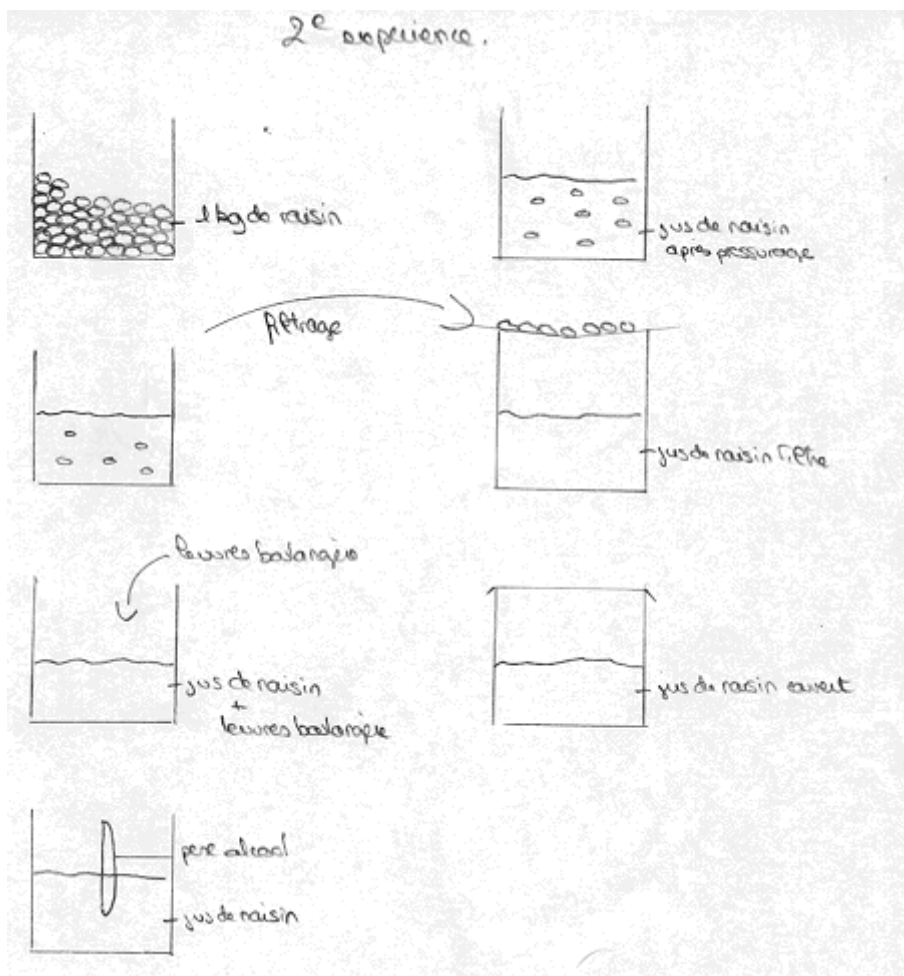 2e expérience.
1 kg de raisin
jus de raisin
après pressurage
filtrage
jus de raisin filtré
levures boulangère
jus de raisin
+
levures boulangère
jus de raisin couvert
pese alcool
jus de raisin